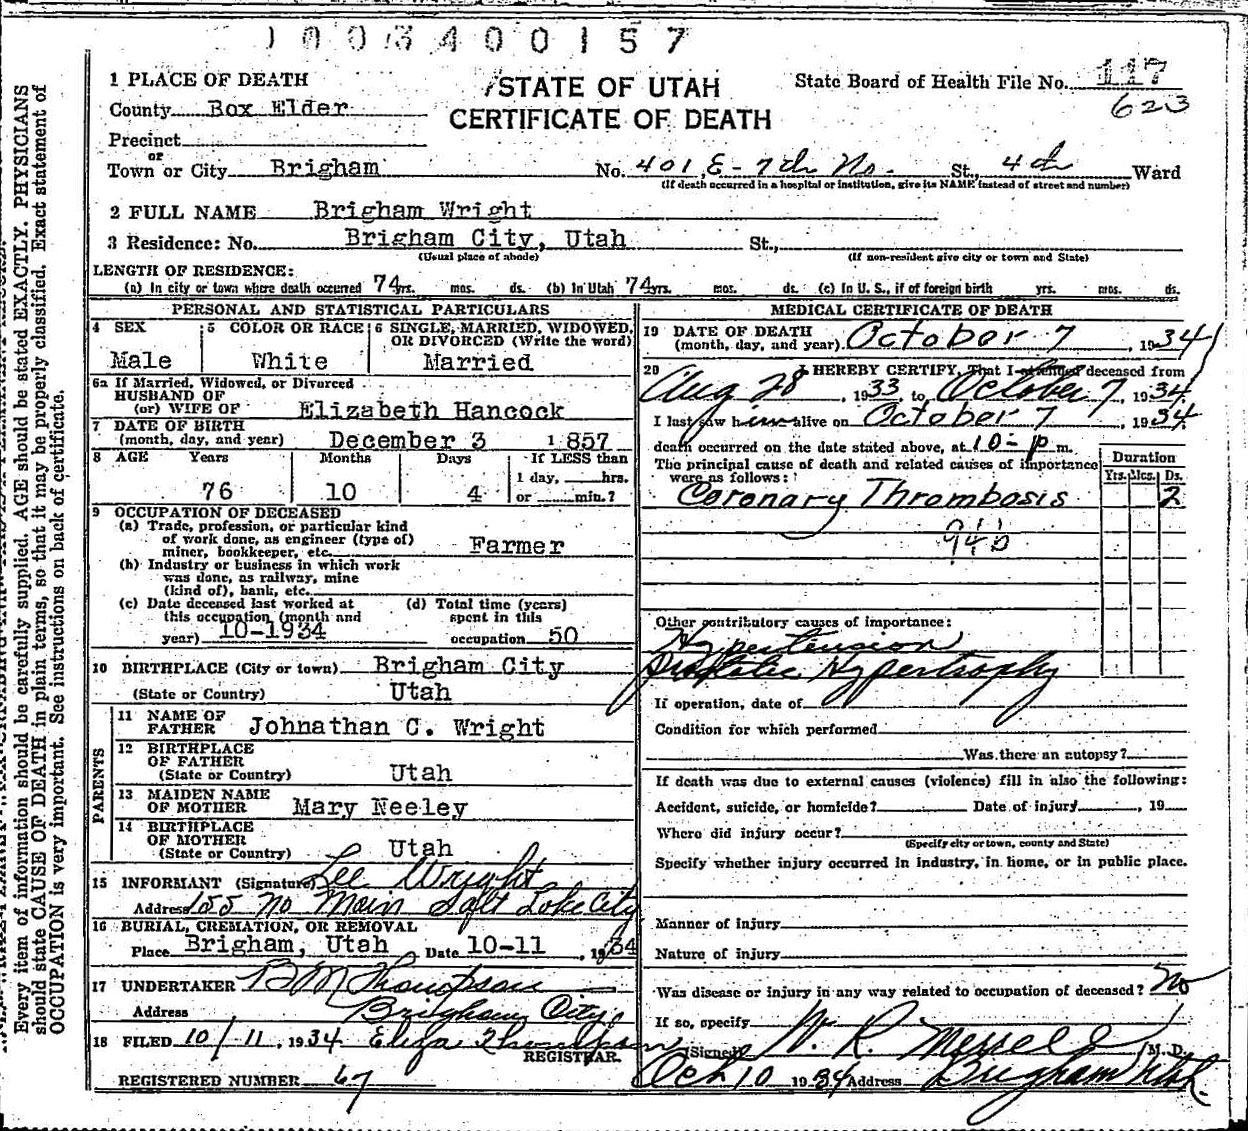 1003400157
1 PLACE OF DEATH
STATE OF UTAH
CERTIFICATE OF DEATH
State Board of Health File No. 117
623
County Box Elder
Precinct
or
Town or City Brigham No. 401 E - 7th No. St., 4th Ward
(If death occurred in a hospital or institution, give its NAME instead of street and number)
2 FULL NAME Brigham Wright
3 Residence: No. Brigham City, Utah St.,
(Usual place of abode) (If non-resident give city or town and State)
LENGTH OF RESIDENCE:
(a) In city or town where death occurred 74 yrs. mos. ds. (b) In Utah 74 yrs. mos. ds. (c) In U. S., if of foreign birth yrs. mos. ds.
PERSONAL AND STATISTICAL PARTICULARS
4 SEX
Male
5 COLOR OR RACE
White
6 SINGLE, MARRIED, WIDOWED,
OR DIVORCED (Write the word)
Married
6a If Married, Widowed, or Divorced
HUSBAND OF
(or) WIFE OF Elizabeth Hancock
7 DATE OF BIRTH
(month, day, and year) December 3 1857
8 AGE Years Months Days If LESS than
1 day, hrs.
76 10 4 or min.?
9 OCCUPATION OF DECEASED
(a) Trade, profession, or particular kind
of work done, as engineer (type of)
miner, bookkeeper, etc. Farmer
(b) Industry or business in which work
was done, as railway, mine
(kind of), bank, etc.
(c) Date deceased last worked at
this occupation (month and
year) 10-1934
(d) Total time (years)
spent in this
occupation 50
10 BIRTHPLACE (City or town) Brigham City
(State or Country) Utah
PARENTS
11 NAME OF
FATHER Johnathan C. Wright
12 BIRTHPLACE
OF FATHER
(State or Country) Utah
13 MAIDEN NAME
OF MOTHER Mary Neeley
14 BIRTHPLACE
OF MOTHER
(State or Country) Utah
15 INFORMANT (Signature) Lee Wright
Address 155 No Main Salt Lake City
16 BURIAL, CREMATION, OR REMOVAL
Place Brigham, Utah Date 10-11, 1934
17 UNDERTAKER B M Thompson
Address Brigham City
18 FILED 10/11, 1934 Eliza Thompson
REGISTRAR.
REGISTERED NUMBER 67
MEDICAL CERTIFICATE OF DEATH
19 DATE OF DEATH
(month, day, and year) October 7, 1934
20 I HEREBY CERTIFY, That I attended deceased from
Aug 28, 1933, to October 7, 1934
I last saw him alive on October 7, 1934
death occurred on the date stated above, at 10-p m.
The principal cause of death and related causes of importance
were as follows:
Duration
Yrs. Mos. Ds.
Coronary Thrombosis 2
94b
Other contributory causes of importance:
Hypertension
Prostatic Hypertrophy
If operation, date of
Condition for which performed
Was there an autopsy?
If death was due to external causes (violence) fill in also the following:
Accident, suicide, or homicide? Date of injury, 19
Where did injury occur?
(Specify city or town, county and State)
Specify whether injury occurred in industry, in home, or in public place.
Manner of injury
Nature of injury
Was disease or injury in any way related to occupation of deceased? No
If so, specify
(Signed) W. R. Merrell M. D.
Oct 10 1934 Address Brigham Utah.
Every item of information should be carefully supplied. AGE should be stated EXACTLY. PHYSICIANS
should state CAUSE OF DEATH in plain terms, so that it may be properly classified. Exact statement of
OCCUPATION is very important. See instructions on back of certificate.